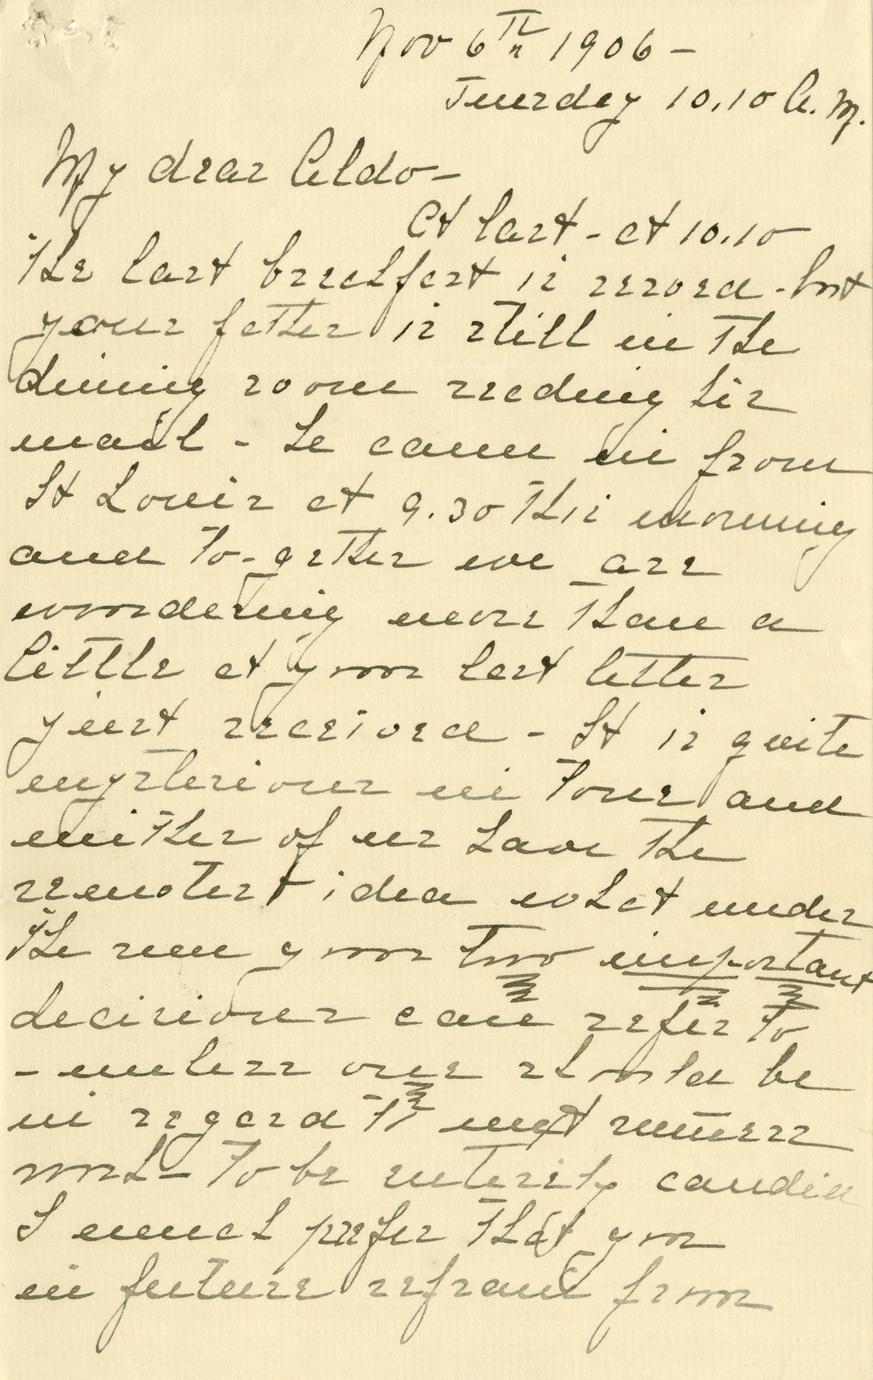 Nov 6th 1906 -
Tuesday 10.10 A. M.
My dear Aldo -
At last - at 10.10
the last breakfast is served - but
your father is still in the
dining room reading his
mail - he came in from
St Louis at 9.30 this morning
and to-gether we are
wondering more than a
little at your last letter
just received - It is quite
mysterious in tone and
neither of us have the
remotest idea what under
the sun your two important
decisions can refer to
- unless one should be
in regard to next summers
work - To be entirely candid
I much prefer that you
in future refrain from